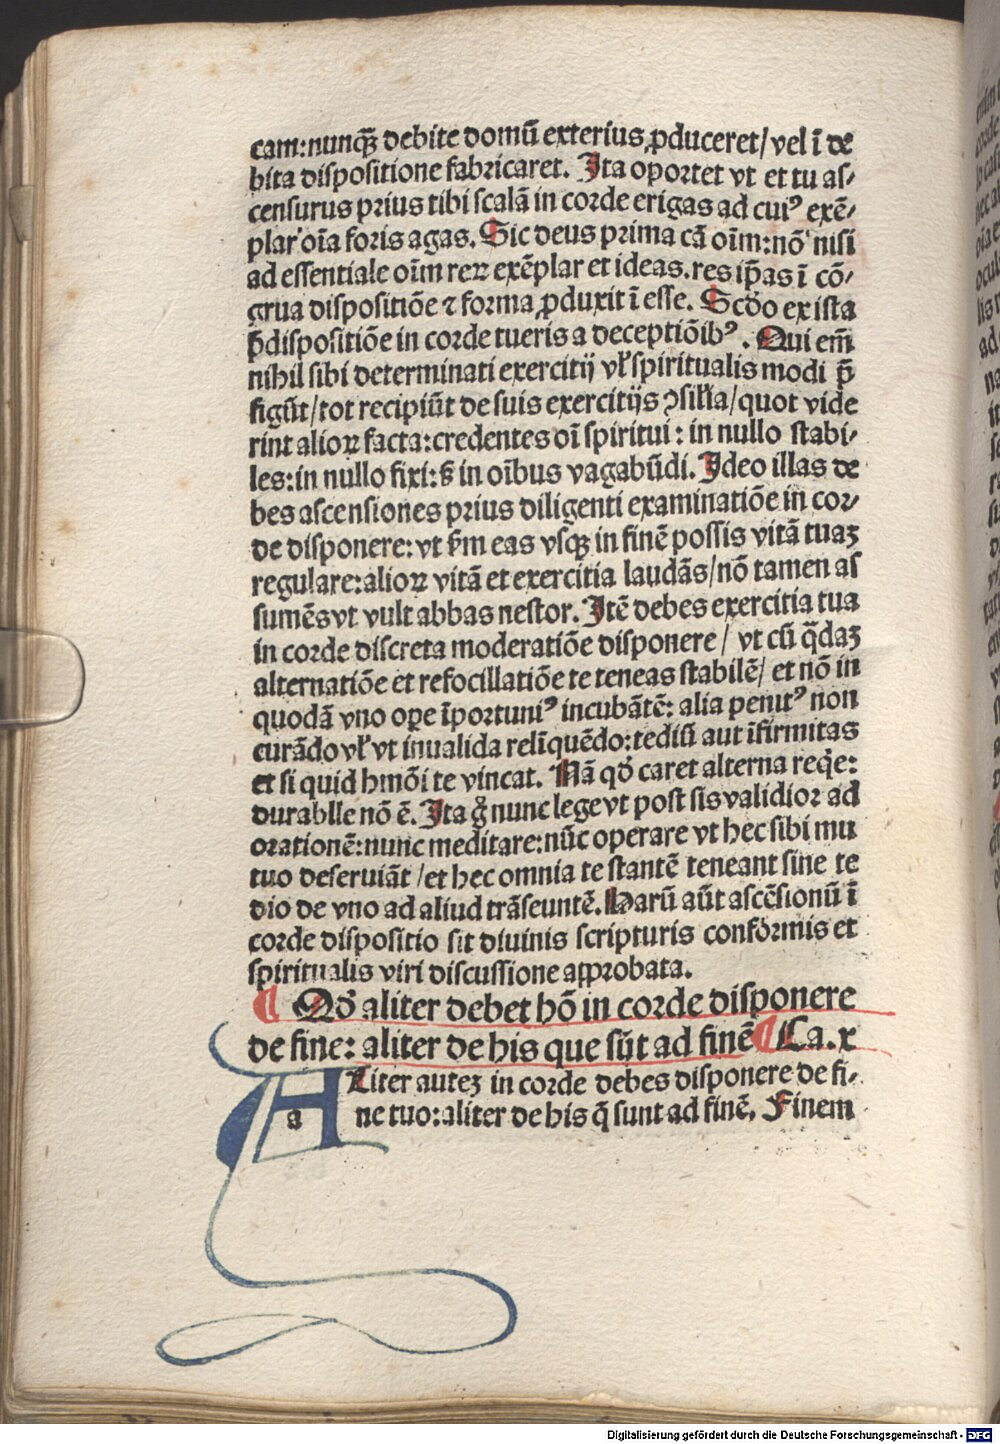 cam:nunqꝫ debite domū exterius ꝓduceret/ vel ī de
bita dispositione fabricaret. Ita oportet vt et tu as⸗
censurus prius tibi scalā in corde erigas ad cuiꝰ exē⸗
plar oīa foris agas. Sic deus prima cā oīm:nō nisi
ad essentiale oīm reꝝ exēplar et ideas.res ip̄as ī cō⸗
grua dispositiōe ⁊ forma ꝓduxit ī esse. Scd̄o ex ista
p̄dispositiōe in corde tueris a deceptiōibꝰ. Qui em̄
nihil sibi determinati exercitij vł spiritualis modi p̄
figūt/tot recipiūt de suis exercitijs ꝯsilła/quot vide
rint alioꝝ facta:credentes oī spiritui: in nullo stabi⸗
les:in nullo fixi:ẜ in oībus vagabūdi. Ideo illas de
bes ascensiones prius diligenti examinatiōe in cor⸗
de disponere:vt ẜm eas vsqꝫ in finē possis vitā tuaꝫ
regulare:alioꝝ vitā et exercitia laudās/nō tamen as
sumēs vt vult abbas nestor. Itē debes exercitia tua
in corde discreta moderatiōe disponere/ vt cū q̄daꝫ
alternatiōe et refocillatiōe te teneas stabilē/ et nō in
quodā vno oꝑe īportuniꝰ incubātē: alia penitꝰ non
curādo vł vt inualida relīquēdo:tediū aut īfirmitas
et si quid hmōi te vincat. Nā qd̓ caret alterna req̓e:
durablle nō ē. Ita g̊ nunc lege vt post sis validior ad
orationē:nunc meditare:nūc operare vt hec sibi mu
tuo deseruiāt /et hec omnia te stantē teneant sine te
dio de vno ad aliud trāseuntē. Harū aūt ascēsionū ī
corde dispositio sit diuinis scripturis conformis et
spiritualis viri discussione approbata.
¶ Qd̓ aliter debet hō in corde disponere
de fine: aliter de his que sūt ad finē ¶ Ca.x
ALiter auteꝫ in corde debes disponere de fi⸗
a ne tuo:aliter de his q̄ sunt ad finē. Finem
Digitalisierung gefördert durch die Deutsche Forschungsgemeinschaft - DFG